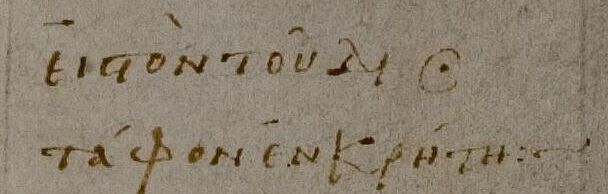 εἰπὸν τοῦ Δι ☉
τάφον ἐν Κρήτη :~